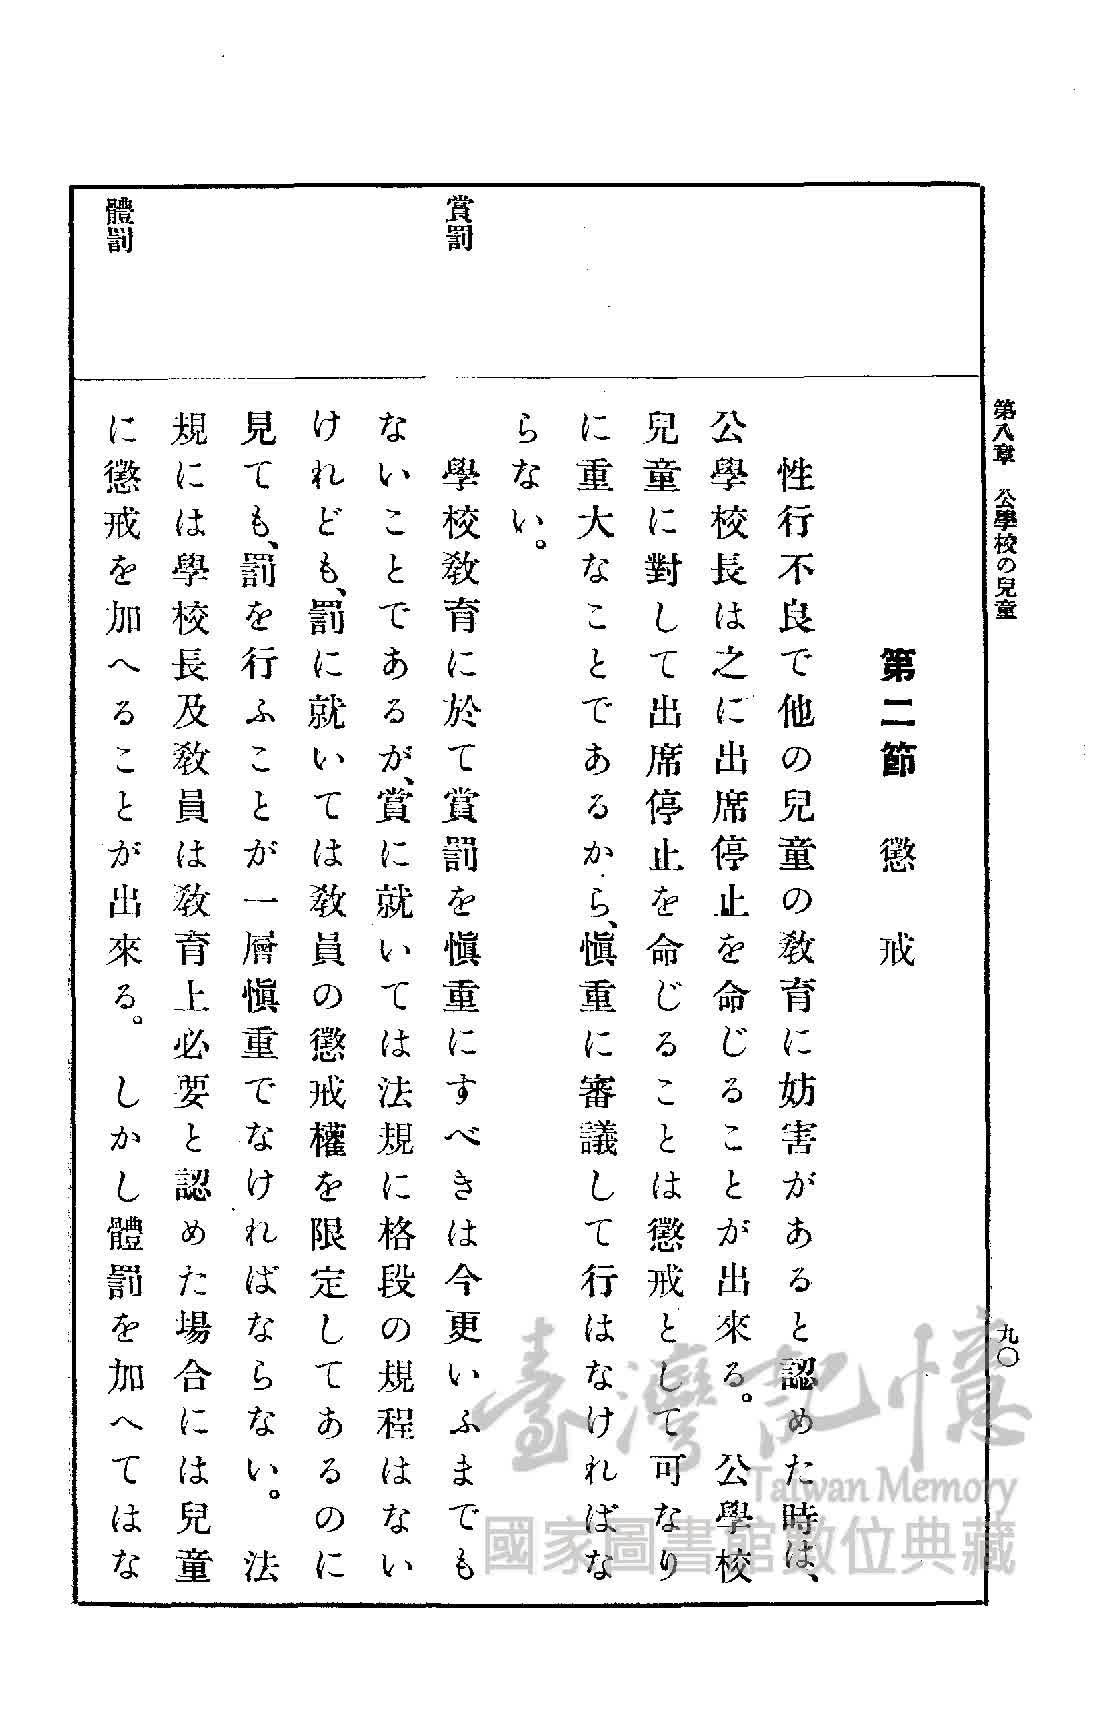 第八章　公學校の兒童
九〇
第二節　懲戒
性行不良で他の兒童の教育に妨害があると認めた時は、
公學校長は之に出席停止を命じることが出來る。公學校
兒童に對して出席停止を命じることは懲戒として可なり
に重大なことであるから、愼重に審議して行はなければな
らない。
賞罰
學校教育に於て賞罰を愼重にすべきは今更いふまでも
ないことであるが、賞に就いては法規に格段の規程はない
けれども、罰に就いては教員の懲戒權を限定してあるのに
見ても、罰を行ふことが一層愼重でなければならない。法
規には學校長及教員は教育上必要と認めた場合には兒童
體罰
に懲戒を加へることが出來る。しかし體罰を加へてはな
臺灣記憶
Taiwan Memory
國家圖書館數位典藏